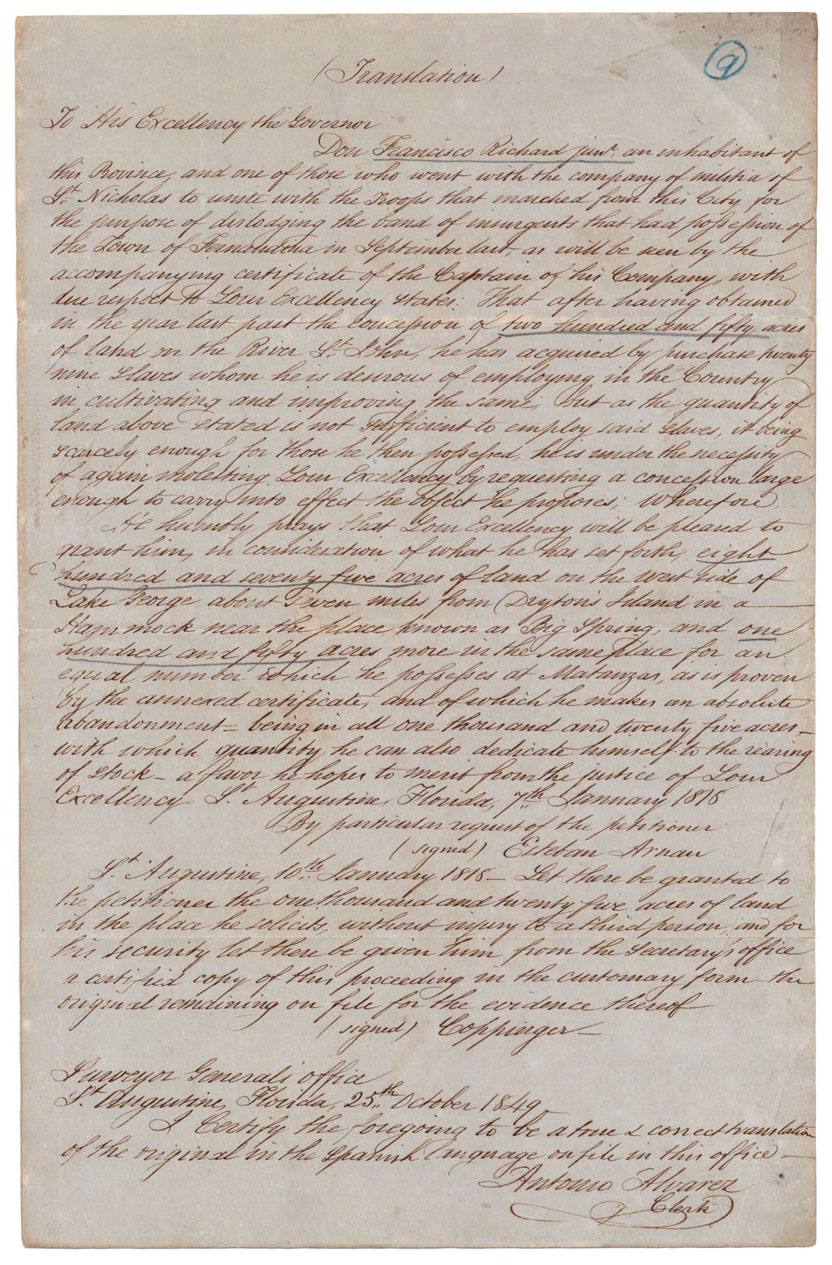 9
(Translation)
To His Excellency the Governor
Don Francisco Richard junr. an inhabitant of
this Province, and one of those who went with the company of militia of
St. Nicholas to unite with the troops that marched from this City for
the purpose of dislodging the band of insurgents that had possession of
the Town of Fernandina in September last, as will be seen by the
accompanying certificate of the Captain of his Company, with
due respect to Your Excellency states: That after having obtained
in the year last past the concession of two hundred and fifty acres
of land on the River St. John, he has acquired by purchase twenty
nine Slaves whom he is desirous of employing in the Country
in cultivating and improving the same, but as the quantity of
land above stated is not sufficient to employ said slaves, it being
scarcely enough for those he then possessed, he is under the necessity
of again molesting Your Excellency by requesting a concession large
enough to carry into effect the object he proposes; Wherefore
He humbly prays that Your Excellency will be pleased to
grant him, in consideration of what he has set forth, eight
hundred and seventy five acres of land on the West side of
Lake George about Seven miles from Drayton's Island in a
Hammock near the place known as Big Spring, and one
hundred and fifty acres more in the same place for an
equal number which he possesses at Matanzas, as is proven
by the annexed certificate, and of which he makes an absolute
abandonment – being in all one thousand and twenty five acres –
with which quantity he can also dedicate himself to the rearing
of stock – a favor he hopes to merit from the justice of Your
Excellency. St. Augustine, Florida, 7th January 1818
By particular request of the petitioner
(signed) Esteban Arnau
St. Augustine, 10th January 1818 – Let there be granted to
the petitioner the one thousand and twenty five acres of land
in the place he solicits, without injury to a third person, and for
his security let there be given him from the Secretary's office
a certified copy of this proceeding in the customary form the
original remaining on file for the evidence thereof
(signed) Coppinger –
Surveyor General's office
St. Augustine, Florida, 25th October 1849
I Certify the foregoing to be a true & correct translation
of the original in the Spanish language on file in this office –
Antonio Alvarez
Clerk